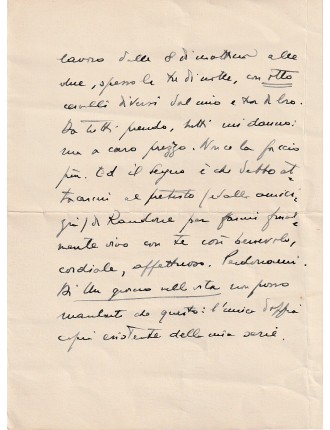 lavoro dalle 8 di mattina alle
due, spesso le tre di notte, con otto
cervelli diversi dal mio e tra di loro.
Da tutti prendo, tutti mi danno:
ma a caro prezzo. Non ce la faccio
più. Ed il segno è che debbo at-
taccarmi al pretesto (
di Randone per farmi final-
mente vivo con te così benevolo,
cordiale, affettuoso. Perdonami.
Di Un giorno nella vita non posso
mandarti che questo: l'unica doppia
copia esistente della mia serie.